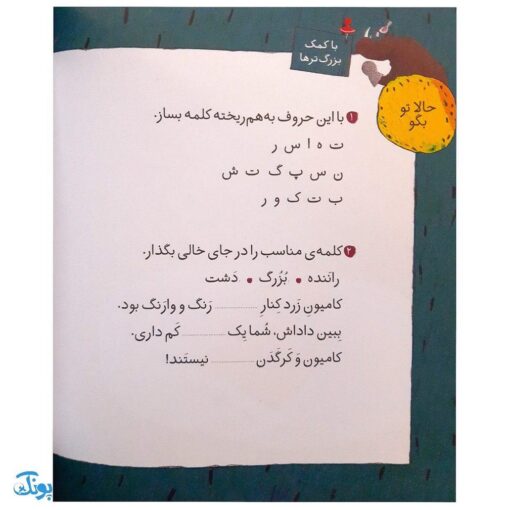 با کمک
بزرگ‌ترها
حالا تو
بگو
۱ با این حروف به‌هم‌ریخته کلمه بساز.
ت ه ا س ر
ن س پ گ ت ش
ب ت ک و ر
۲ کلمه‌ی مناسب را در جای خالی بگذار.
راننده • بُزُرگ • دَشت
کامیونِ زَرد کِنارِ ........... رَنگ و وارَنگ بود.
بِبین داداش، شُما یِک ........... کَم داری.
کامیون وَ کَرگَدَن ........... نیستَند!
پونک